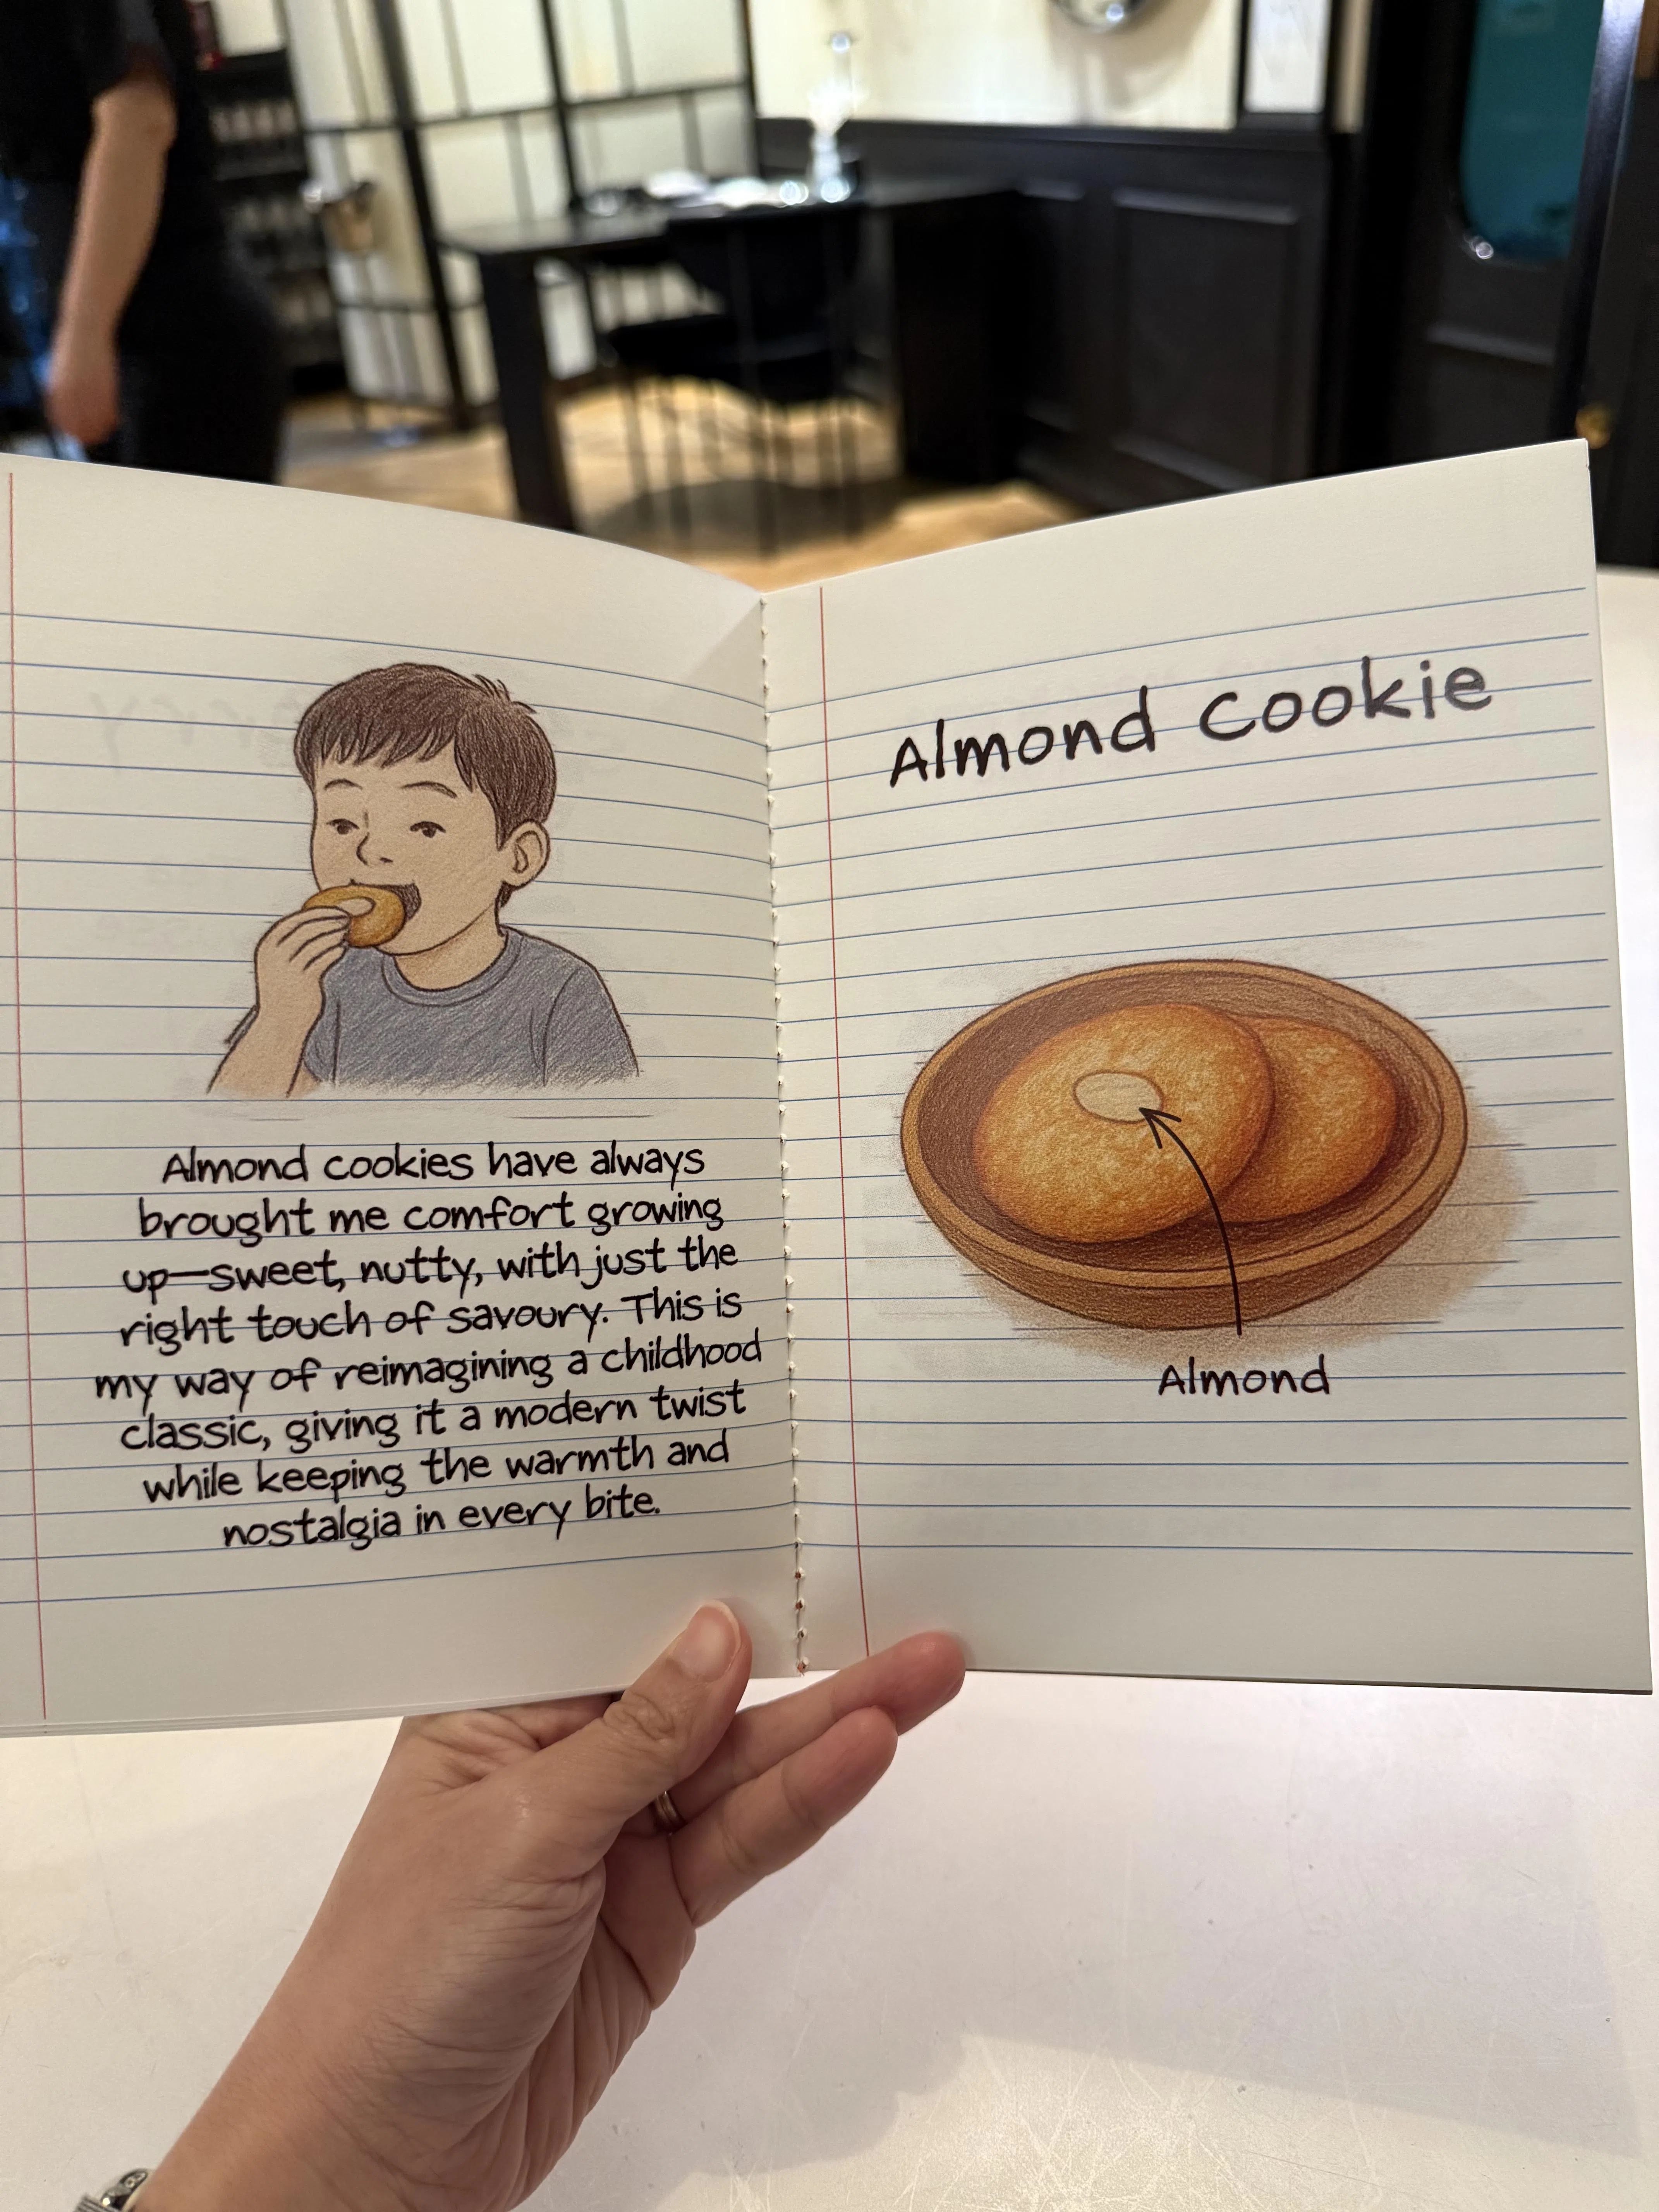 Almond cookies have always
brought me comfort growing
up—sweet, nutty, with just the
right touch of savoury. This is
my way of reimagining a childhood
classic, giving it a modern twist
while keeping the warmth and
nostalgia in every bite.
Almond Cookie
Almond